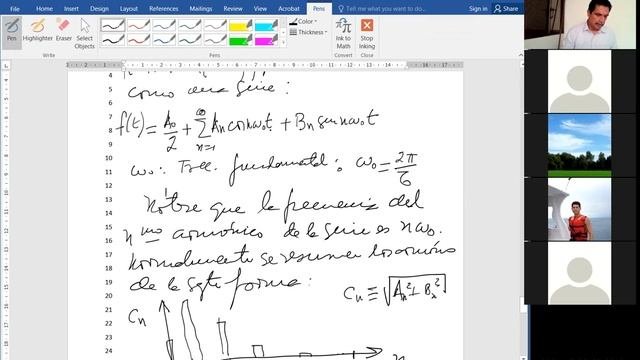 File Home Insert Design Layout References Mailings Review View Acrobat Pens Tell me what you want to do... Sign in Share
Pen Highlighter Eraser Select Objects
Color
Thickness
Ink to Math
Stop Inking
Write Pens Convert Close
como una serie:
f(t) = A₀/2 + Σ_{n=1}^{∞} An cos nω₀t + Bn sen nω₀t
ω₀: Frec. fundamental: ω₀ = 2π/T
Nótese que la frecuencia del
n mo armónico de la serie es nω₀.
Normalmente se resumen los armónics
de la sgte forma: Cn ≡ √(An² + Bn²)
Cn
n